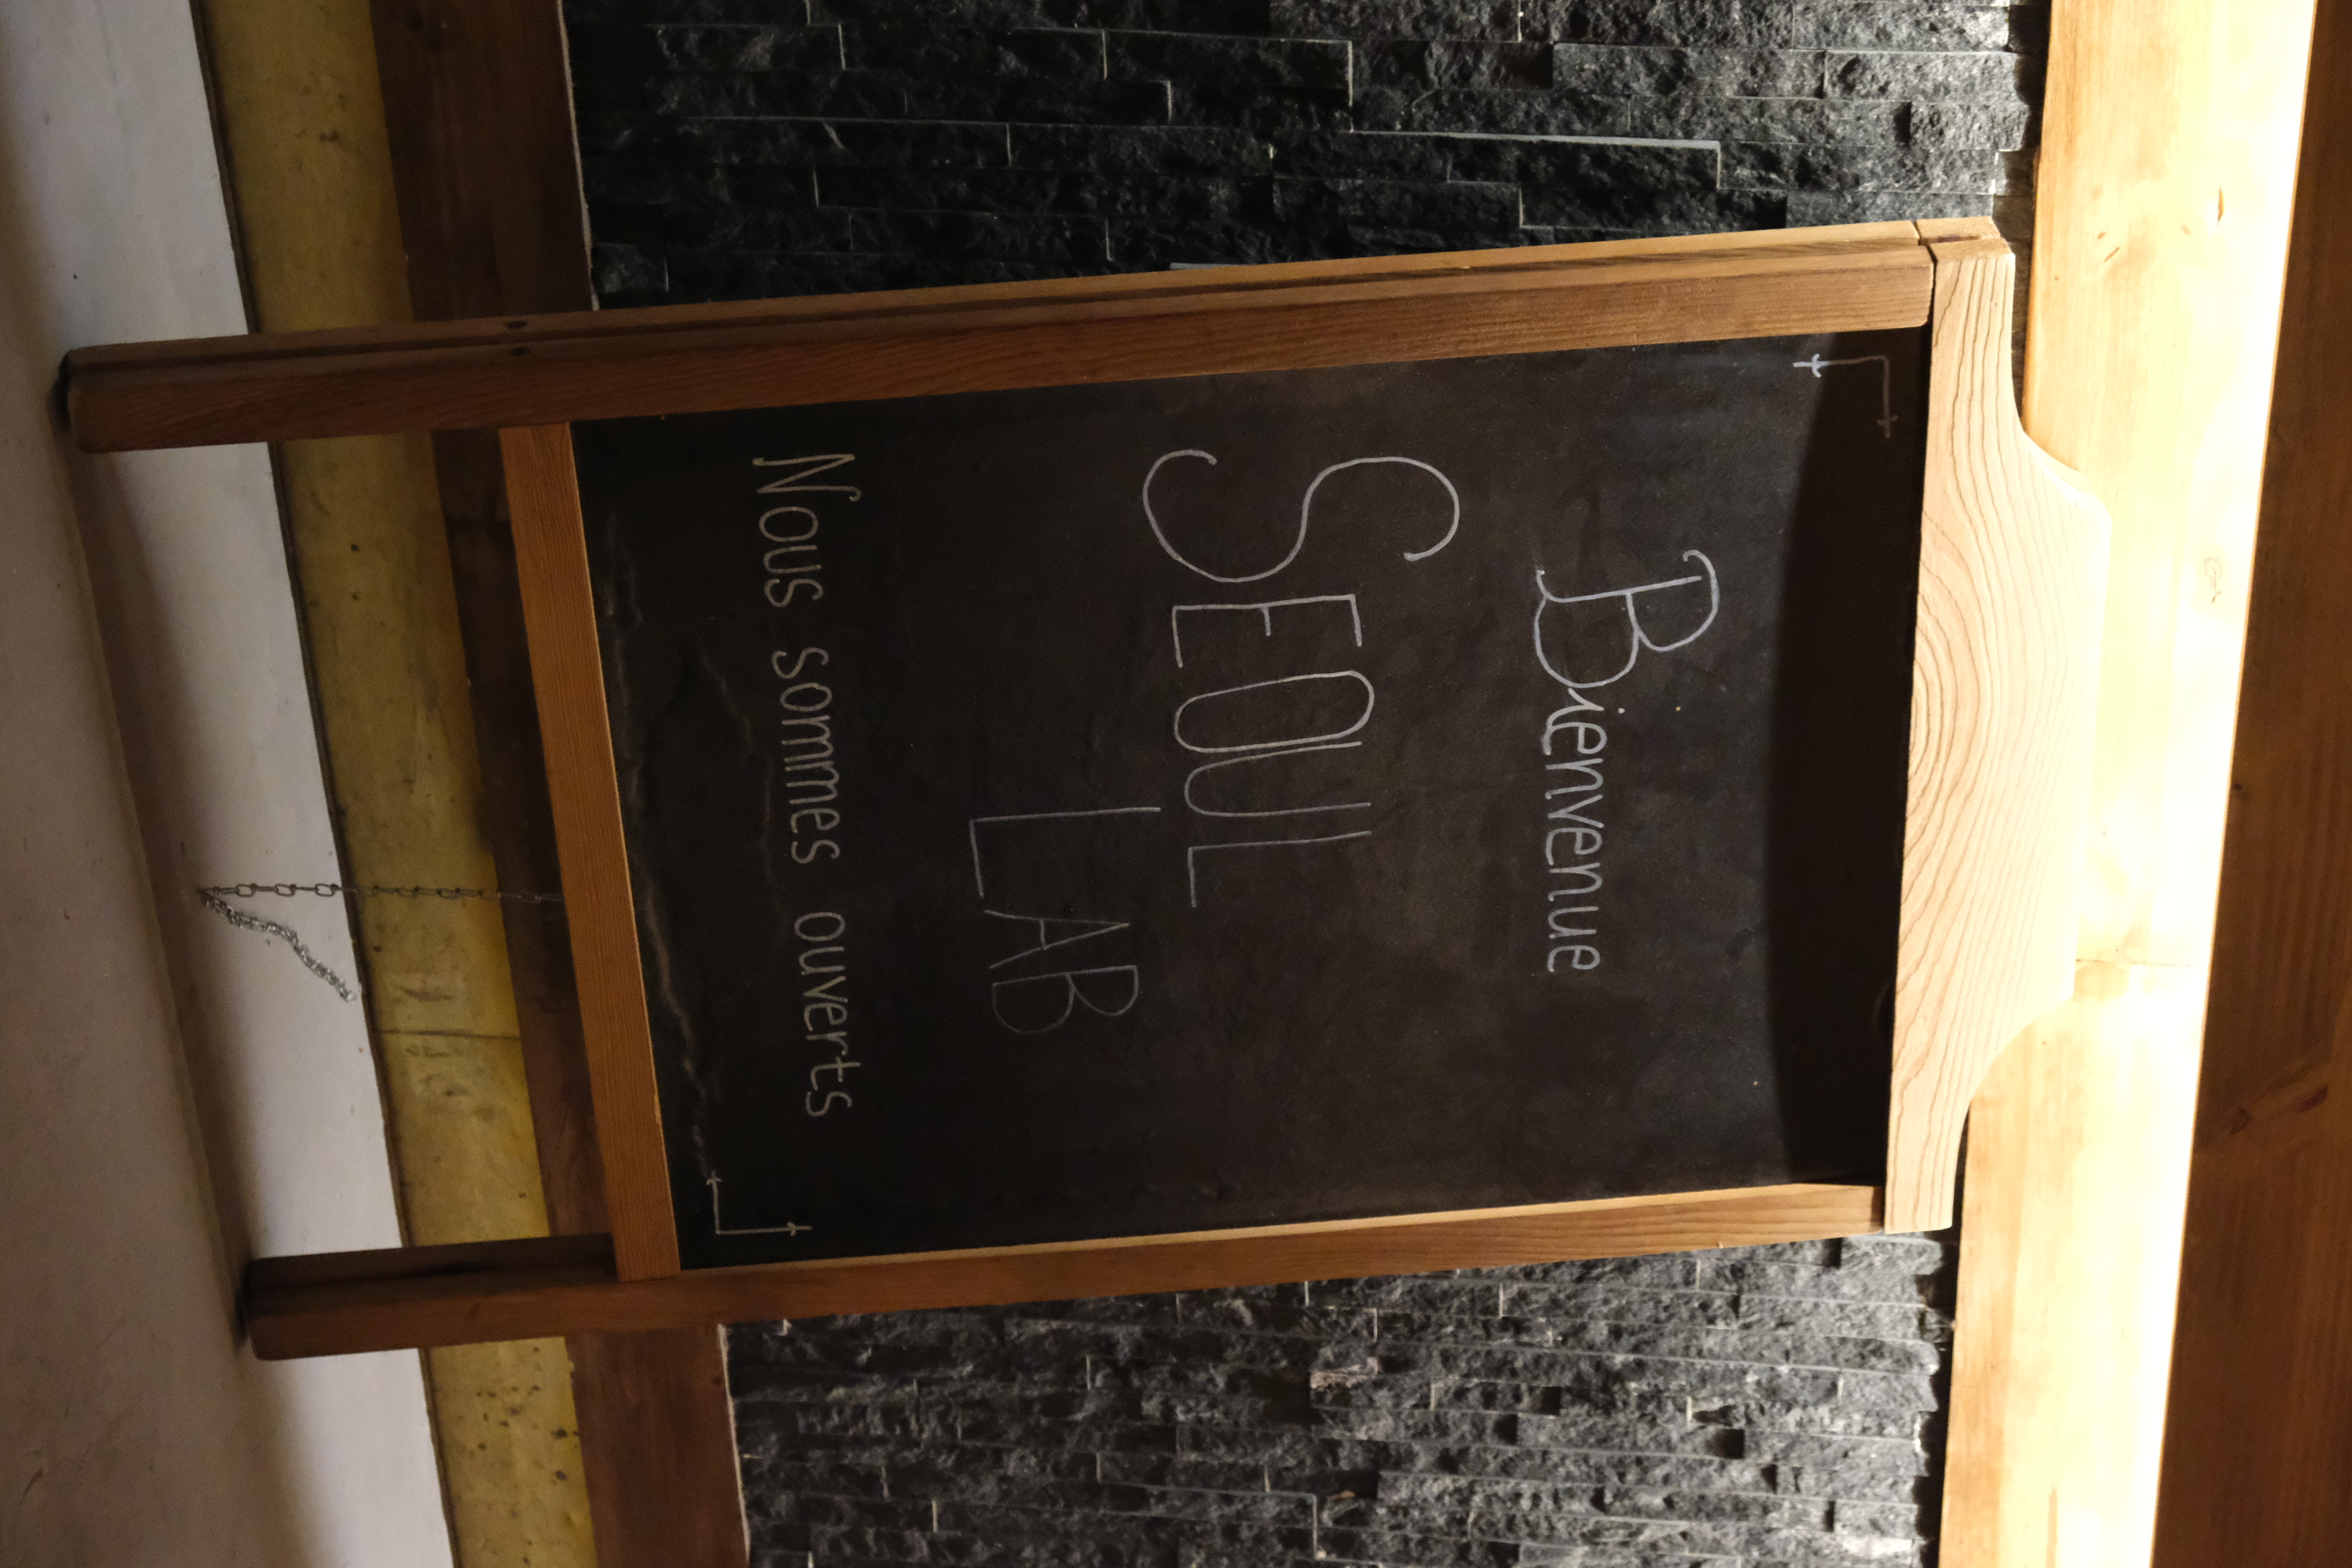 Bienvenue
SEOUL
LAB
Nous sommes ouverts